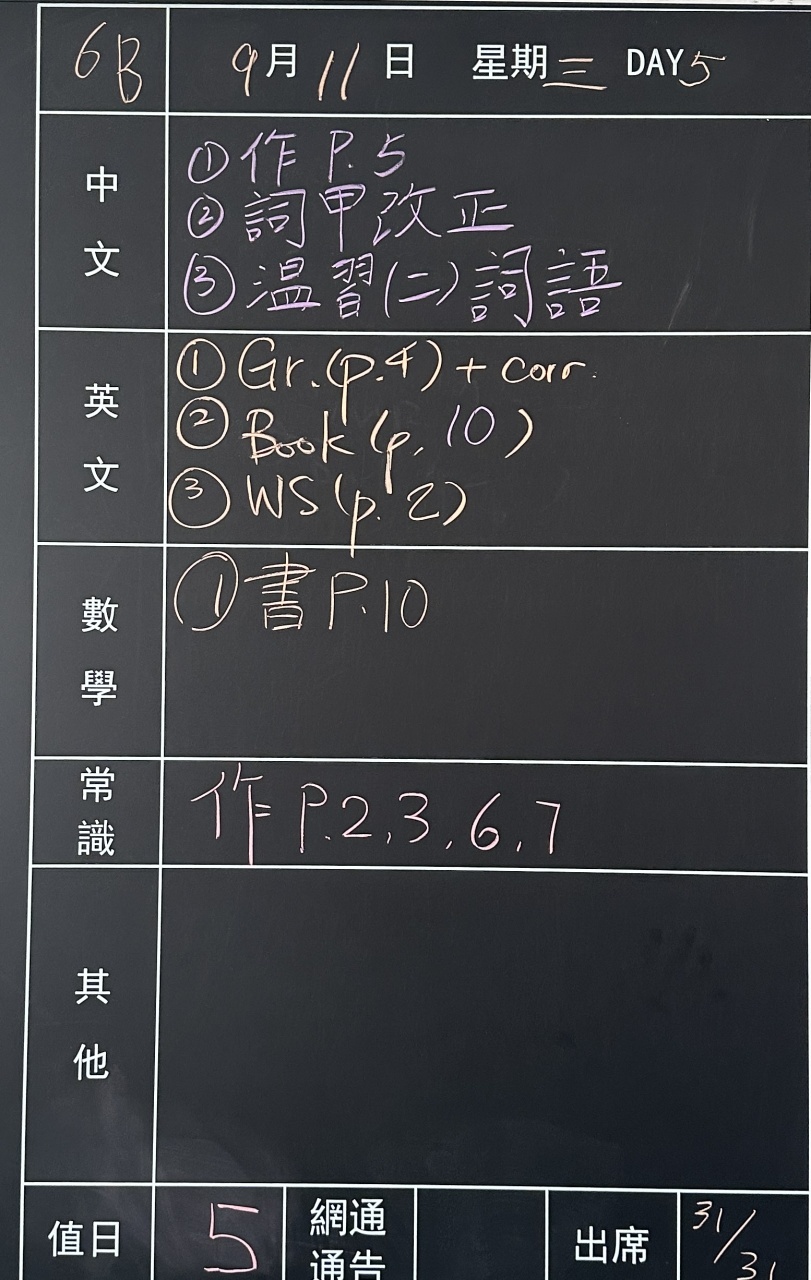 6B 9月11日 星期三 DAY5
中文
①作 P.5
②詞甲改正
③温習(二)詞語
英文
①Gr.(p.4)+corr.
②Book(p.10)
③WS(p.2)
數學
①書P.10
常識
作P.2,3,6,7
其他
值日 5 網通通告 出席 31/31